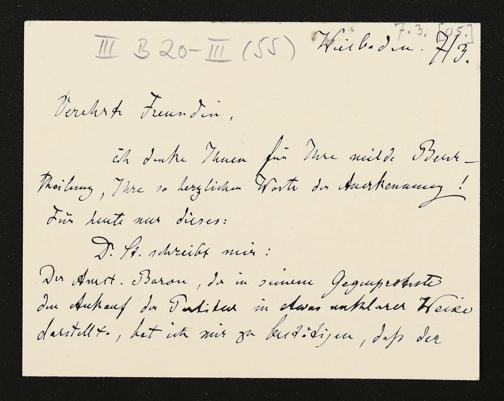 7.3. [05.]
III B 20-III (55)
Wiesbaden. 7/3.
Verehrte Freundin,
ich danke Ihnen für Ihre milde Beur-
theilung, Ihre so herzlichen Worte der Anerkennung!
Für heute nur dieses:
Dr. St. schreibt mir:
Da Baron, der in seinem Gegenproteste
den Ankauf der Partitur in etwas unklarer Weise
darstellte, bat ich mir zu bestätigen, daß der